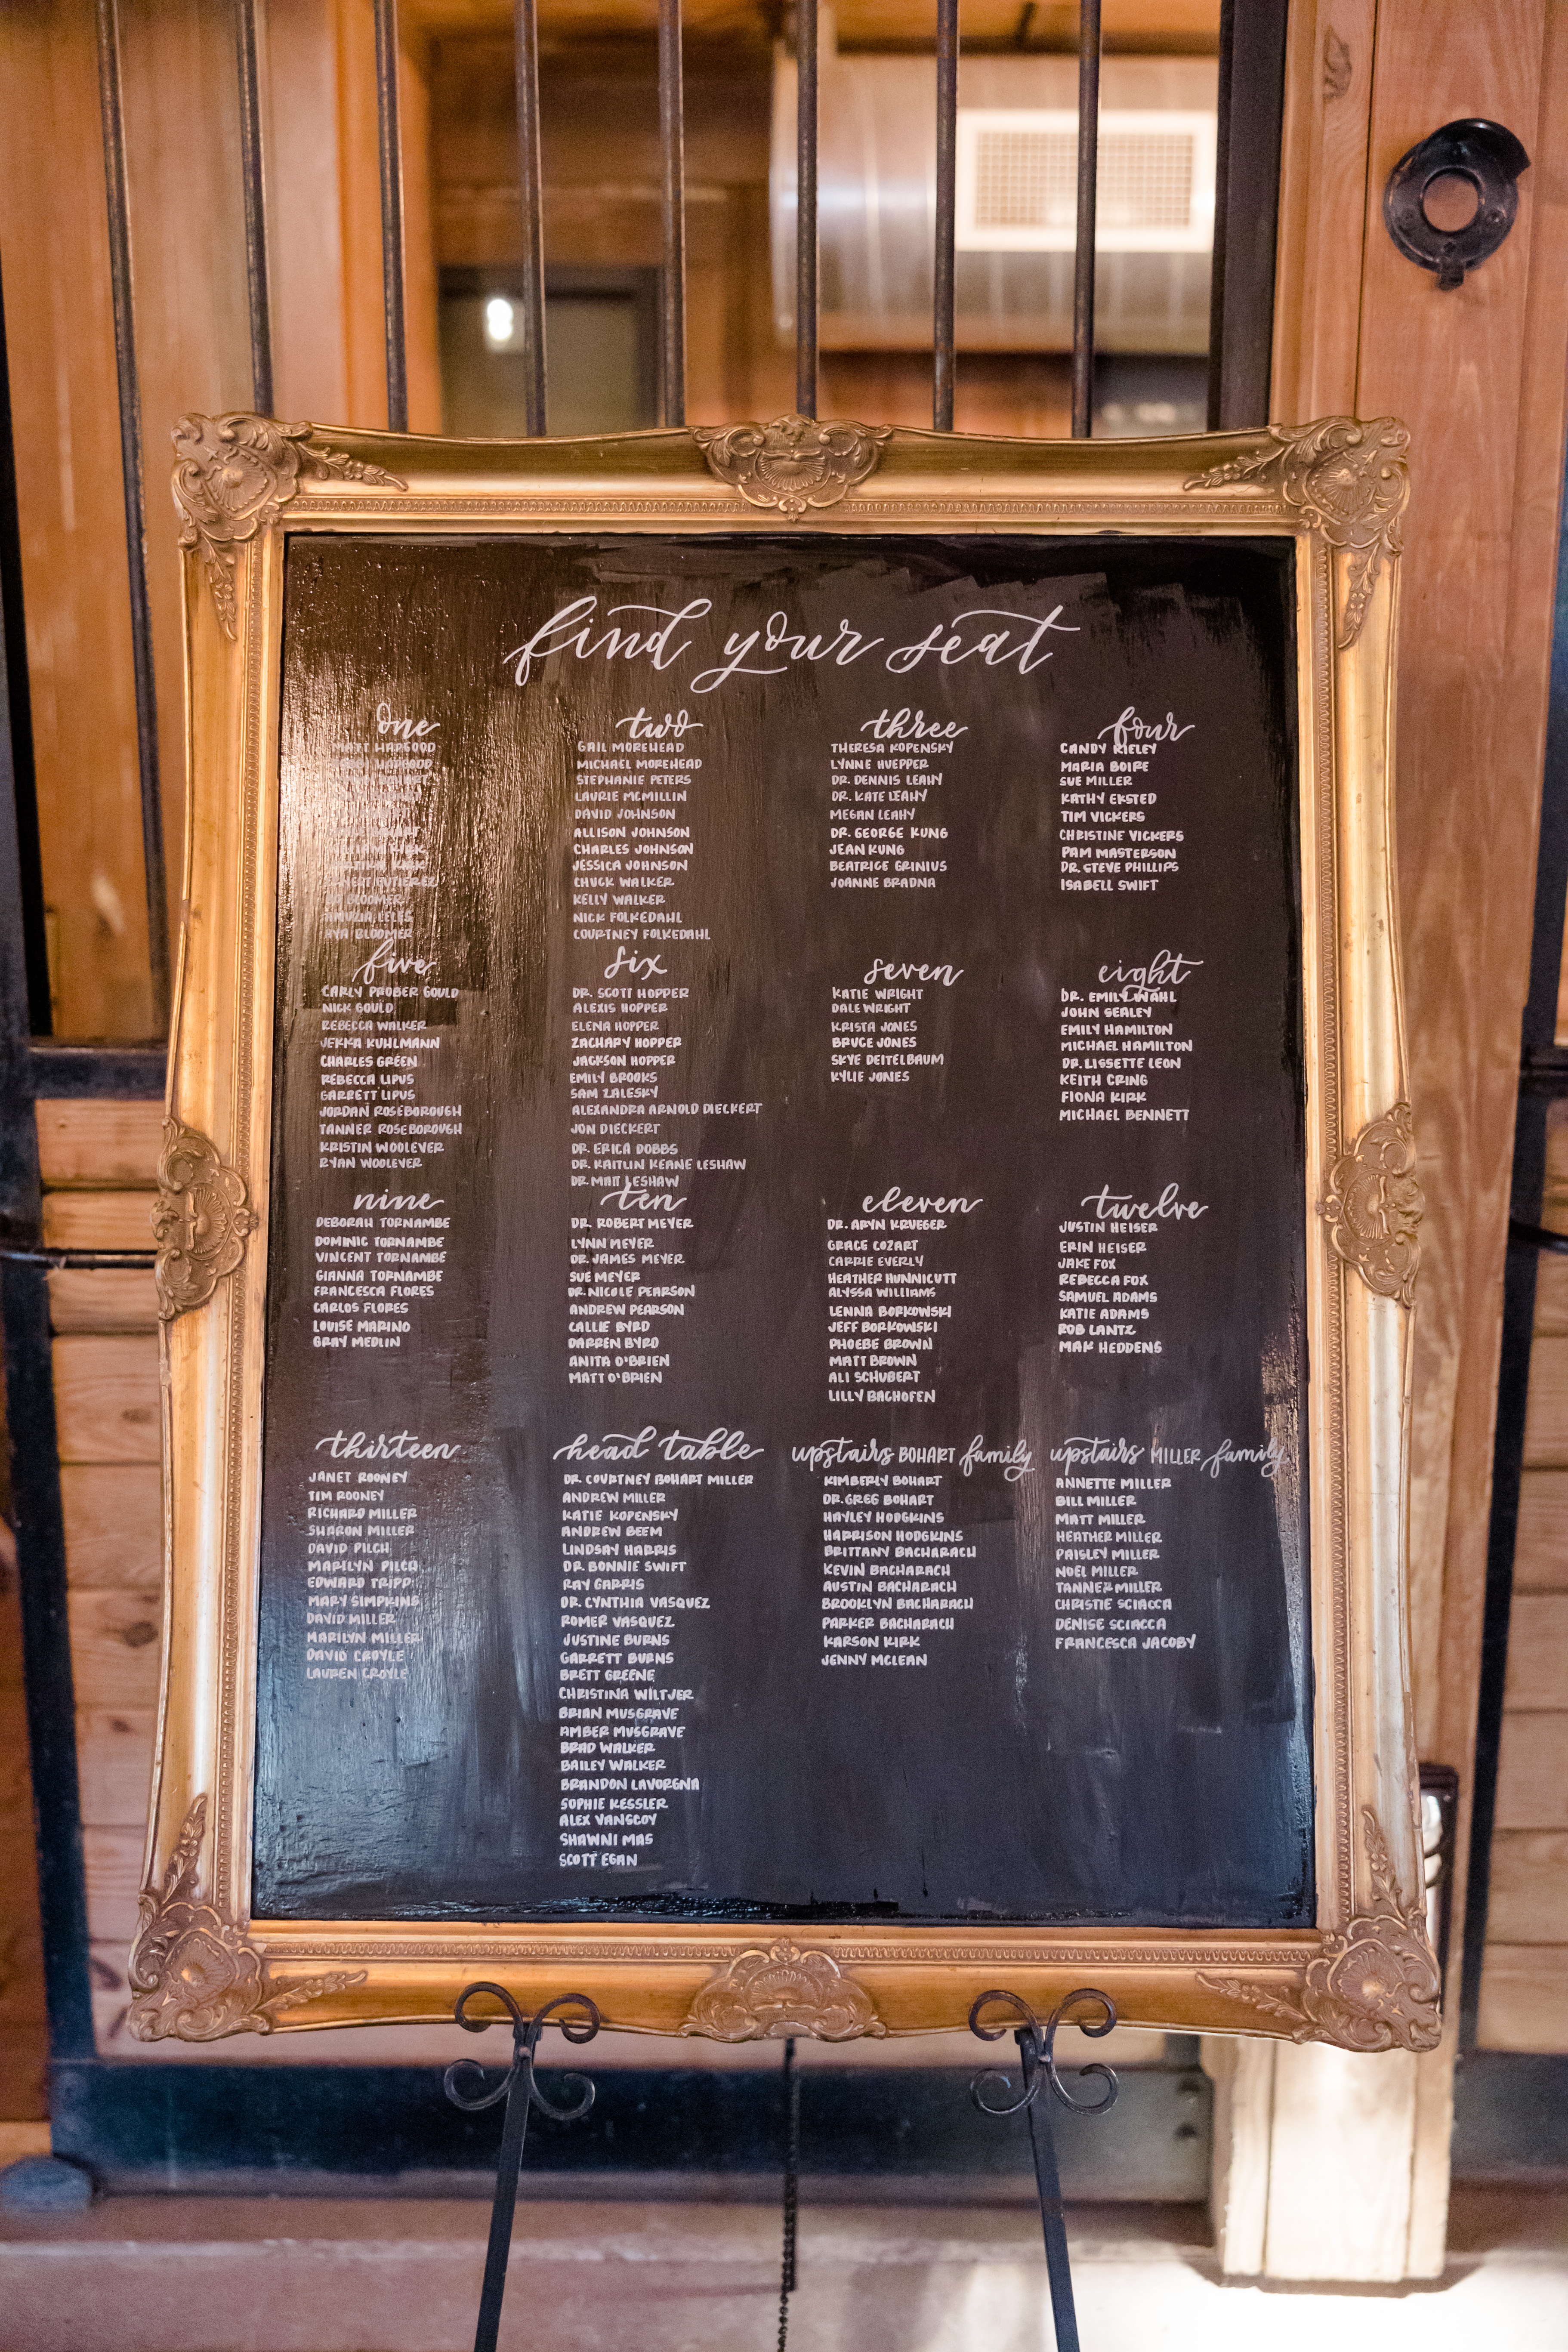 find your seat
one
MATT HAPGOOD
HAPGOOD
KIRK
KIRK
GUTIEREZ
BLOOMER
AYA BLOOMER
two
GAIL MOREHEAD
MICHAEL MOREHEAD
STEPHANIE PETERS
LAURIE MCMILLIN
DAVID JOHNSON
ALLISON JOHNSON
CHARLES JOHNSON
JESSICA JOHNSON
CHUCK WALKER
KELLY WALKER
NICK FOLKEDAHL
COURTNEY FOLKEDAHL
three
THERESA KOPENSKY
LYNNE HUEPPER
DR. DENNIS LEAHY
DR. KATE LEAHY
MEGAN LEAHY
DR. GEORGE KUNG
JEAN KUNG
BEATRICE GRINIUS
JOANNE BRADNA
four
CANDY RIELEY
MARIA BOIRE
SUE MILLER
KATHY EKSTED
TIM VICKERS
CHRISTINE VICKERS
PAM MASTERSON
DR. STEVE PHILLIPS
ISABELL SWIFT
five
CARLY PROBER GOULD
NICK GOULD
REBECCA WALKER
JEKKA KUHLMANN
CHARLES GREEN
REBECCA LIPUS
GARRETT LIPUS
JORDAN ROSEBOROUGH
TANNER ROSEBOROUGH
KRISTIN WOOLEVER
RYAN WOOLEVER
six
DR. SCOTT HOPPER
ALEXIS HOPPER
ELENA HOPPER
ZACHARY HOPPER
JACKSON HOPPER
EMILY BROOKS
SAM ZALESKY
ALEXANDRA ARNOLD DIECKERT
JON DIECKERT
DR. ERICA DOBBS
DR. KAITLIN KEANE LESHAW
DR. MATT LESHAW
seven
KATIE WRIGHT
DALE WRIGHT
KRISTA JONES
BRUCE JONES
SKYE DEITELBAUM
KYLIE JONES
eight
DR. EMILY WAHL
JOHN SEALEY
EMILY HAMILTON
MICHAEL HAMILTON
DR. LISSETTE LEON
KEITH CRING
FIONA KIRK
MICHAEL BENNETT
nine
DEBORAH TORNAMBE
DOMINIC TORNAMBE
VINCENT TORNAMBE
GIANNA TORNAMBE
FRANCESCA FLORES
CARLOS FLORES
LOUISE MARINO
GRAY MEDLIN
ten
DR. ROBERT MEYER
LYNN MEYER
DR. JAMES MEYER
SUE MEYER
DR. NICOLE PEARSON
ANDREW PEARSON
CALLIE BYRD
DARREN BYRD
ANITA O'BRIEN
MATT O'BRIEN
eleven
DR. ARYN KRUEGER
GRACE COZART
CARRIE EVERLY
HEATHER HUNNICUTT
ALYSSA WILLIAMS
LENNA BORKOWSKI
JEFF BORKOWSKI
PHOEBE BROWN
MATT BROWN
ALI SCHUBERT
LILLY BACHOFEN
twelve
JUSTIN HEISER
ERIN HEISER
JAKE FOX
REBECCA FOX
SAMUEL ADAMS
KATIE ADAMS
ROB LANTZ
MAK HEDDENS
thirteen
JANET ROONEY
TIM ROONEY
RICHARD MILLER
SHARON MILLER
DAVID PILCH
MARILYN PILCH
EDWARD TRIPP
MARY SIMPKINS
DAVID MILLER
MARILYN MILLER
DAVID CROYLE
LAUREN CROYLE
head table
DR. COURTNEY BOHART MILLER
ANDREW MILLER
KATIE KOPENSKY
ANDREW BEEM
LINDSAY HARRIS
DR. BONNIE SWIFT
RAY GARRIS
DR. CYNTHIA VASQUEZ
ROMER VASQUEZ
JUSTINE BURNS
GARRETT BURNS
BRETT GREENE
CHRISTINA WILTJER
BRIAN MUSGRAVE
AMBER MUSGRAVE
BRAD WALKER
BAILEY WALKER
BRANDON LAVORGNA
SOPHIE KESSLER
ALEX VANSCOY
SHAWNI MAS
SCOTT EGAN
upstairs BOHART family
KIMBERLY BOHART
DR. GREG BOHART
HAYLEY HODGKINS
HARRISON HODGKINS
BRITTANY BACHARACH
KEVIN BACHARACH
AUSTIN BACHARACH
BROOKLYN BACHARACH
PARKER BACHARACH
KARSON KIRK
JENNY MCLEAN
upstairs MILLER family
ANNETTE MILLER
BILL MILLER
MATT MILLER
HEATHER MILLER
PAISLEY MILLER
NOEL MILLER
TANNER MILLER
CHRISTIE SCIACCA
DENISE SCIACCA
FRANCESCA JACOBY